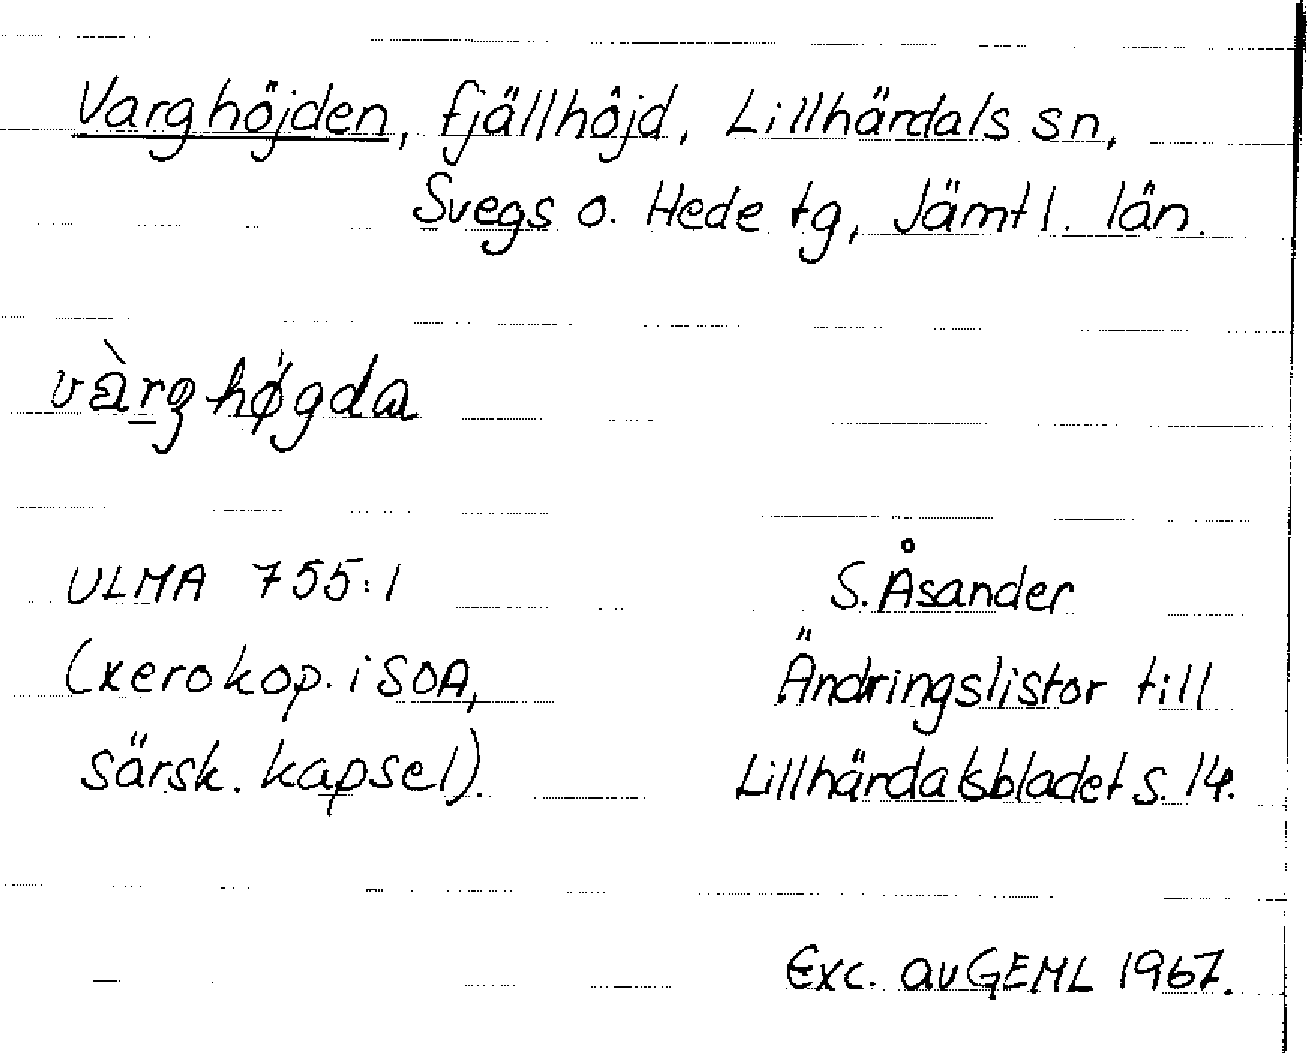 Varghöjden, fjällhöjd, Lillhärdals sn,
Svegs o. Hede tg, Jämtl. län.
vàrghøgda
ULMA 755:1
(xerokop. i SOA,
särsk. kapsel).
S. Åsander
Ändringslistor till
Lillhärdalsbladet s. 14.
Exc. av GEML 1967.